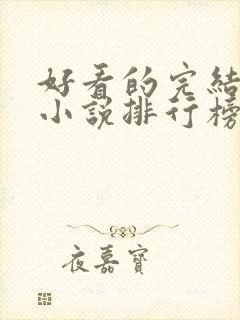 好看的完結
小說排行榜
夜嘉寶